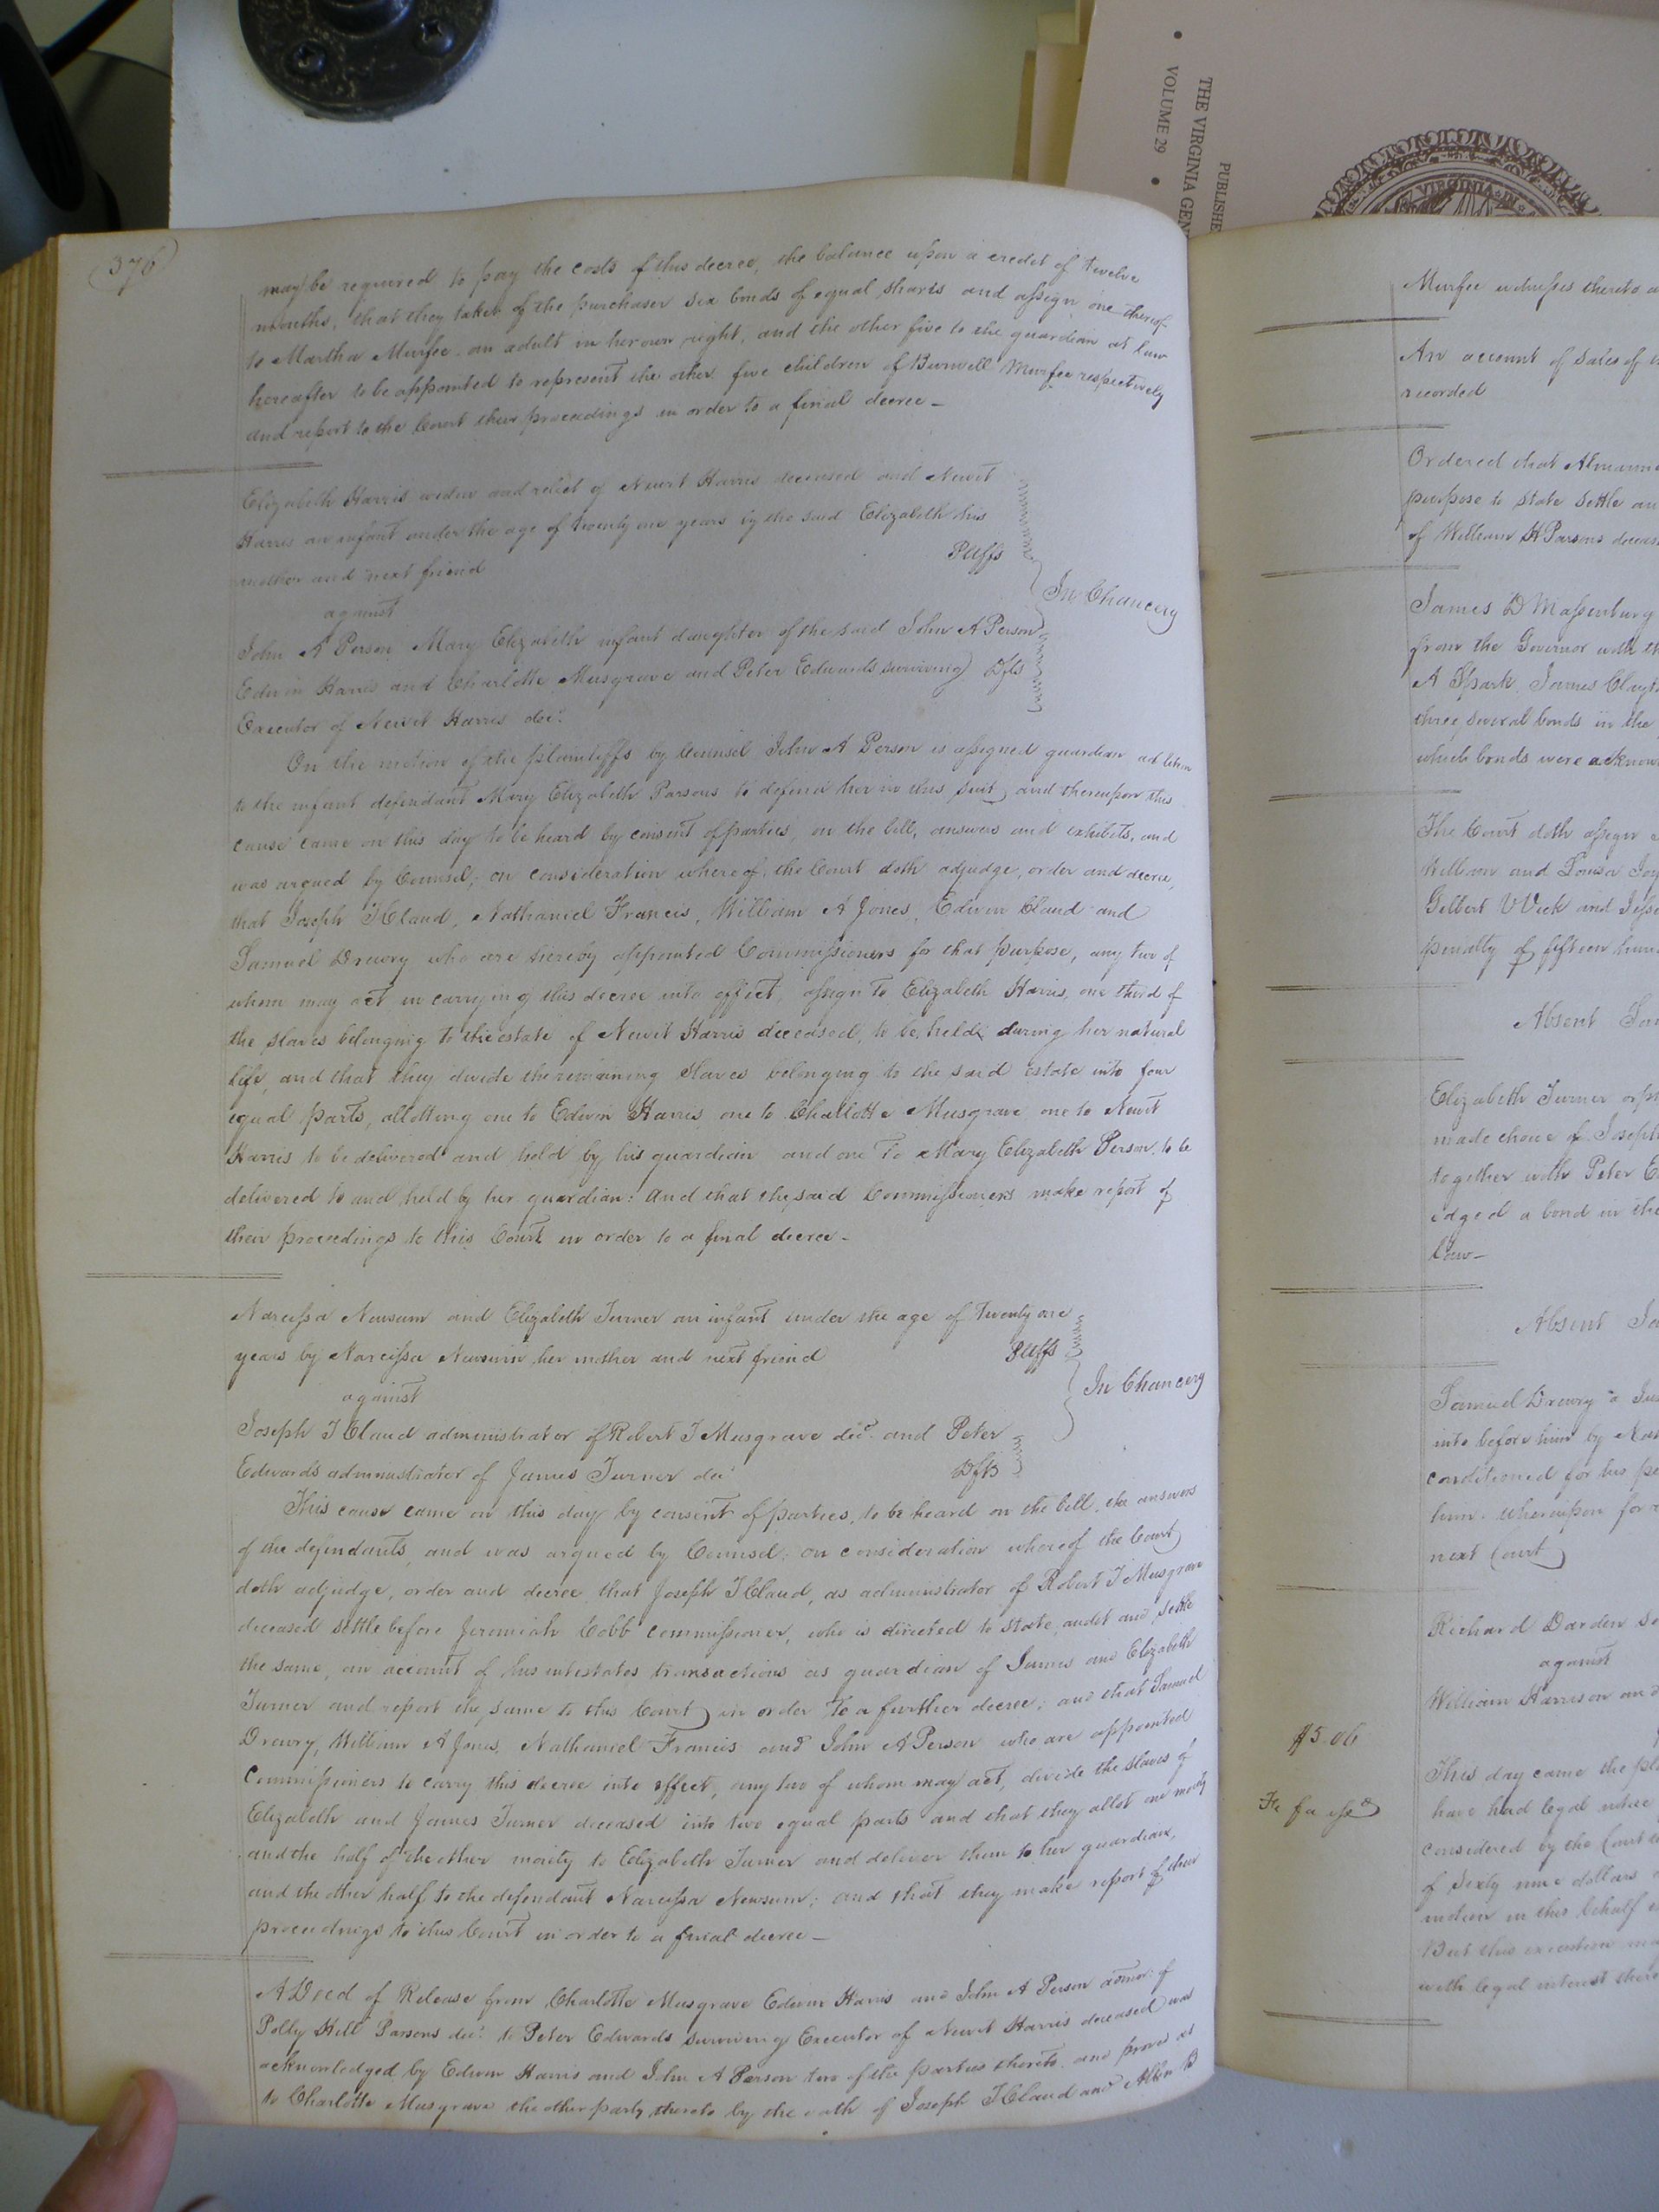 PUBLISHE
THE VIRGINIA GEN
VOLUME 29
VIRGINIA
(376)
may be required to pay the costs of this decree, the balance upon a credit of twelve
months, that they take of the purchaser six bonds of equal shares and assign one thereof
to Martha Murfee an adult in her own right, and the other five to the guardian at law
hereafter to be appointed to represent the other five children of Burwell Murfee respectively
and report to the Court their proceedings in order to a final decree —
Elizabeth Harris widow and relict of Newit Harris deceased and Newit
Harris an infant under the age of twenty one years by the said Elizabeth his
mother and next friend Pltffs
against
In Chancery
John A Person, Mary Elizabeth infant daughter of the said John A Person
Edwin Harris and Charlotte Musgrave and Peter Edwards surviving Dfts
Executor of Newit Harris decd.
On the motion of the plaintiffs by Counsel John A Person is assigned guardian ad litem
to the infant defendant Mary Elizabeth Parsons to defend her in this suit, and thereupon this
cause came on this day to be heard by consent of parties, on the bill, answers and exhibits, and
was argued by Counsel; on consideration whereof, the Court doth adjudge, order and decree,
that Joseph T Claud, Nathaniel Francis, William A Jones, Edwin Claud and
Samuel Drewry who are hereby appointed Commissioners for that purpose, any two of
whom may act in carrying this decree into effect, assign to Elizabeth Harris, one third of
the slaves belonging to the estate of Newit Harris deceased, to be held during her natural
life, and that they divide the remaining slaves belonging to the said estate into four
equal parts, allotting one to Edwin Harris, one to Charlotte Musgrave, one to Newit
Harris to be delivered and held by his guardian and one to Mary Elizabeth Person, to be
delivered to and held by her guardian: and that the said Commissioners make report of
their proceedings to this Court in order to a final decree —
Narcissa Newsum and Elizabeth Turner an infant under the age of twenty one
years by Narcissa Newsum her mother and next friend Pltffs
against
In Chancery
Joseph T Claud administrator of Robert T Musgrave decd. and Peter
Edwards administrator of James Turner decd Dfts
This cause came on this day by consent of parties, to be heard on the bill, the answers
of the defendants, and was argued by Counsel; on consideration whereof the Court
doth adjudge, order and decree that Joseph T Claud, as administrator of Robert T Musgrave
deceased settle before Jeremiah Cobb commissioner, who is directed to state, audit and settle
the same, an account of his intestates transactions as guardian of James and Elizabeth
Turner and report the same to this Court in order to a further decree; and that Samuel
Drewry, William A Jones, Nathaniel Francis and John A Person who are appointed
Commissioners to carry this decree into effect, any two of whom may act, divide the slaves of
Elizabeth and James Turner deceased into two equal parts and that they allot one moiety
and the half of the other moiety to Elizabeth Turner and deliver them to her guardian,
and the other half to the defendant Narcissa Newsum; and that they make report of their
proceedings to this Court in order to a final decree —
A Deed of Release from Charlotte Musgrave Edwin Harris and John A Person admor. of
Polly Hill Parsons decd. to Peter Edwards surviving Executor of Newit Harris deceased was
acknowledged by Edwin Harris and John A Person two of the parties thereto, and proved as
to Charlotte Musgrave the other party thereto by the oath of Joseph T Claud and Albin B
Murfee witnesses thereto a
An account of sales of
recorded
Ordered that
purpose to state settle an
of William H Parsons deceas
James D Massenburg
from the Governor with th
A Spark, James Clayt
three several bonds in the
which bonds were acknow
The Court doth assign
William and Louisa
Gilbert W Vick and
penalty of fifteen hun
Absent
Elizabeth Turner orp
made choice of Joseph
together with Peter E
edged a bond in the
Law —
Absent
Samuel Drewry a Jus
into before him by Nat
conditioned for his
him. whereupon for
next Court
Richard Darden
against
William Harrison and
$5.06
This day came the pl
have had legal
considered by the Court
of sixty nine dollars
in this behalf
But this execution
with legal interest